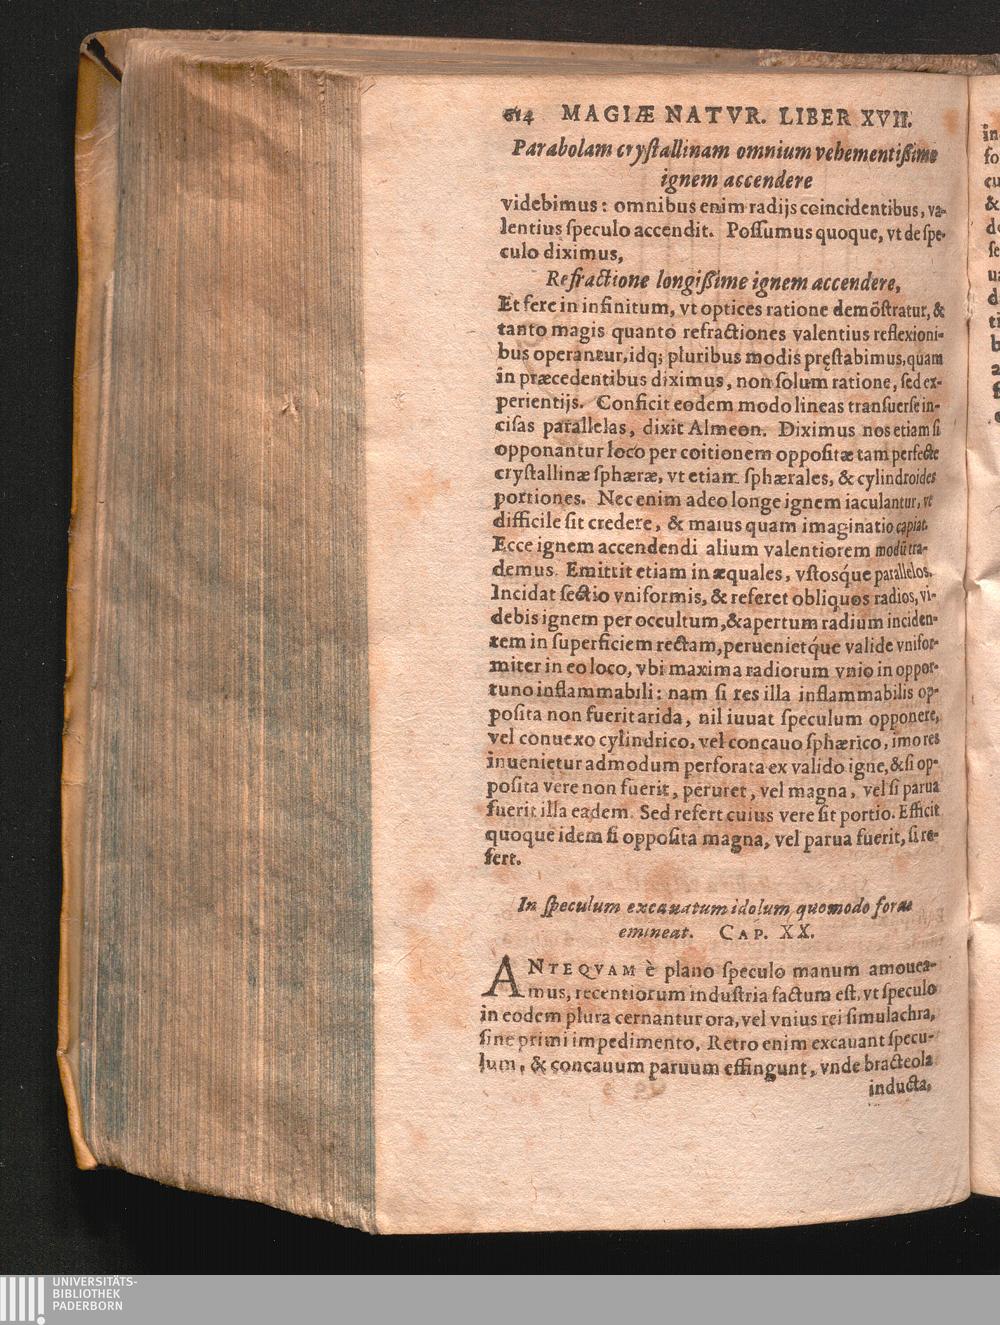 614 MAGIÆ NATVR. LIBER XVII.
Parabolam cryſtallinam omnium vehementißime
ignem accendere
videbimus: omnibus enim radijs coincidentibus, va-
lentius ſpeculo accendit. Poſſumus quoque, vt de ſpe-
culo diximus,
Refractione longißime ignem accendere,
Et fere in infinitum, vt optices ratione demõſtratur, &
tanto magis quanto refractiones valentius reflexioni-
bus operantur, idq; pluribus modis pręſtabimus, quam
in præcedentibus diximus, non ſolum ratione, ſed ex-
perientijs. Conficit eodem modo lineas tranſuerſe in-
ciſas parallelas, dixit Almeon. Diximus nos etiam ſi
opponantur loco per coitionem oppoſitæ tam perfecte
cryſtallinæ ſphæræ, vt etiam ſphærales, & cylindroides
portiones. Nec enim adeo longe ignem iaculantur, vt
difficile ſit credere, & maius quam imaginatio capiat.
Ecce ignem accendendi alium valentiorem modū tra-
demus. Emittit etiam inæquales, vſtosq́ue parallelos.
Incidat ſectio vniformis, & referet obliquos radios, vi-
debis ignem per occultum, & apertum radium inciden-
tem in ſuperficiem rectam, peruenietq́ue valide vnifor-
miter in eo loco, vbi maxima radiorum vnio in oppor-
tuno inflammabili: nam ſi res illa inflammabilis op-
poſita non fuerit arida, nil iuuat ſpeculum opponere,
vel conuexo cylindrico, vel concauo ſphærico, imo res
inuenietur admodum perforata ex valido igne, & ſi op-
poſita vere non fuerit, peruret, vel magna, vel ſi parua
fuerit illa eadem. Sed refert cuius vere ſit portio. Efficit
quoque idem ſi oppoſita magna, vel parua fuerit, ſi re-
fert.
In ſpeculum excauatum idolum quomodo foras
emineat. CAP. XX.
ANTEQVAM è plano ſpeculo manum amouea-
mus, recentiorum induſtria factum eſt, vt ſpeculo
in eodem plura cernantur ora, vel vnius rei ſimulachra,
ſine primi impedimento. Retro enim excauant ſpecu-
lum, & concauum paruum effingunt, vnde bracteola
inducta,
in
fo
cu
&
UNIVERSITÄTS-
BIBLIOTHEK
PADERBORN